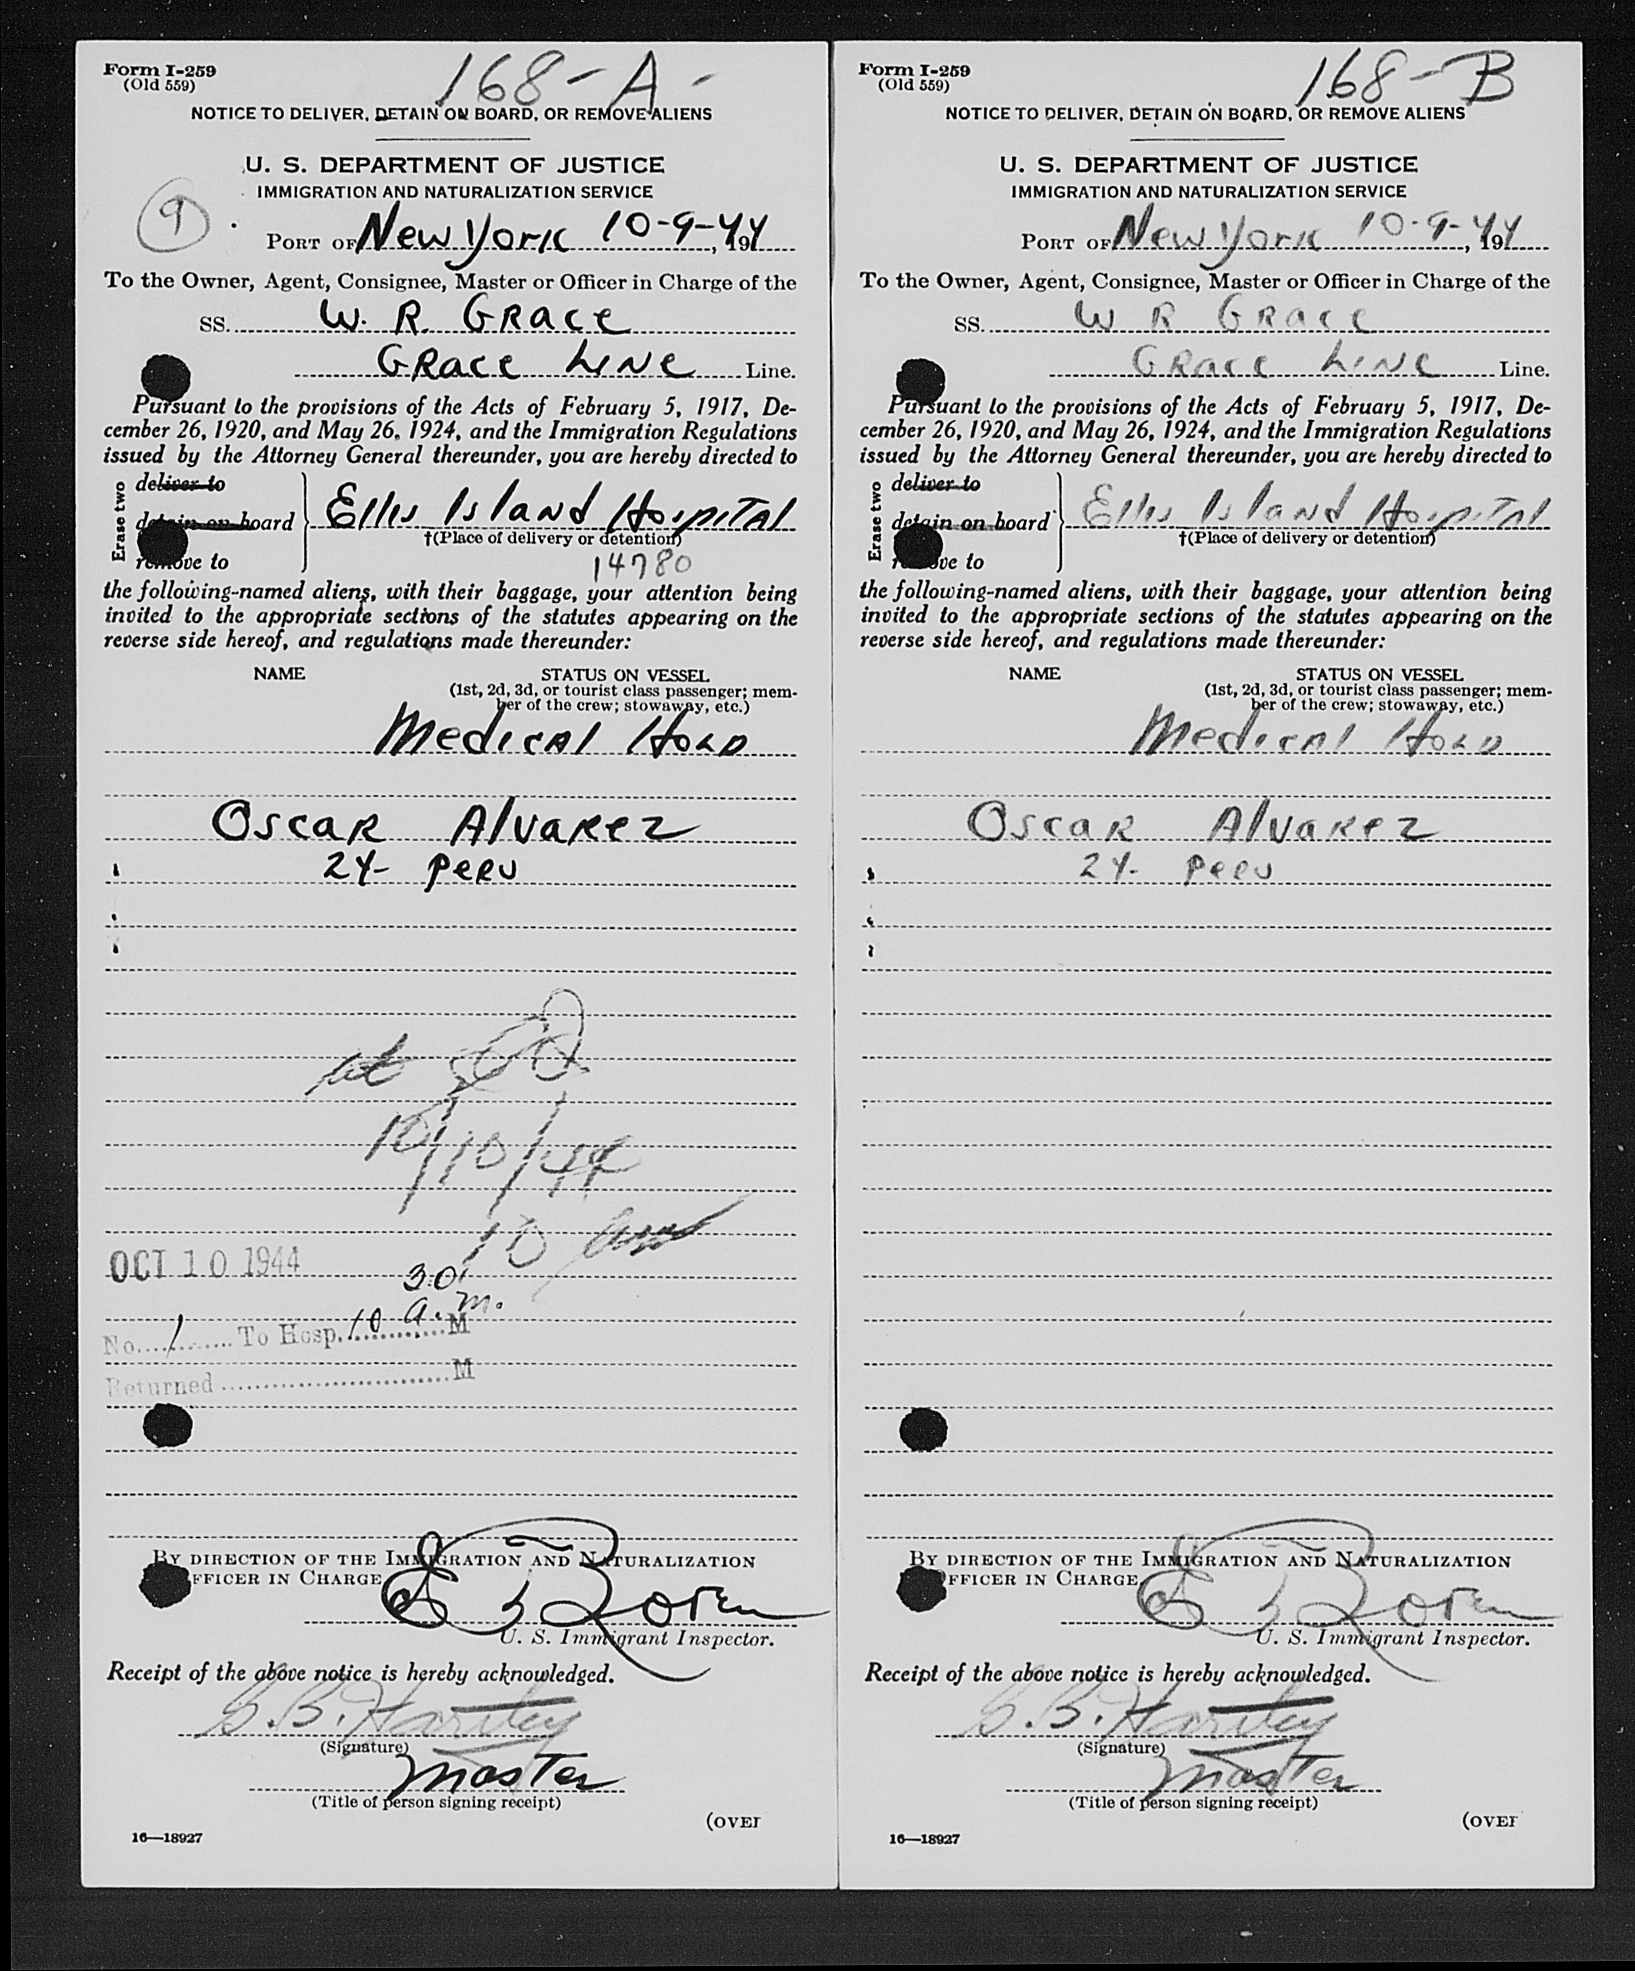 Form I-259
(Old 559)
168-A-
NOTICE TO DELIVER, DETAIN ON BOARD, OR REMOVE ALIENS
U. S. DEPARTMENT OF JUSTICE
IMMIGRATION AND NATURALIZATION SERVICE
9
PORT OF New York 10-9-44, 194
To the Owner, Agent, Consignee, Master or Officer in Charge of the
SS. W. R. GRace
GRace LiNe Line.
Pursuant to the provisions of the Acts of February 5, 1917, De-
cember 26, 1920, and May 26, 1924, and the Immigration Regulations
issued by the Attorney General thereunder, you are hereby directed to
Erase two
deliver to
detain on board
remove to
Ellis Island Hospital
†(Place of delivery or detention)
14780
the following-named aliens, with their baggage, your attention being
invited to the appropriate sections of the statutes appearing on the
reverse side hereof, and regulations made thereunder:
NAME STATUS ON VESSEL
(1st, 2d, 3d, or tourist class passenger; mem-
ber of the crew; stowaway, etc.)
Medical Hold
Oscar Alvarez
24- Peru
10/10/44
10 am
OCT 10 1944
30
No. 1 To Hosp. 10 a.m. M
Returned M
BY DIRECTION OF THE IMMIGRATION AND NATURALIZATION
OFFICER IN CHARGE
U. S. Immigrant Inspector.
Receipt of the above notice is hereby acknowledged.
(Signature)
Master
(Title of person signing receipt)
(OVER
16—18927
Form I-259
(Old 559)
168-B
NOTICE TO DELIVER, DETAIN ON BOARD, OR REMOVE ALIENS
U. S. DEPARTMENT OF JUSTICE
IMMIGRATION AND NATURALIZATION SERVICE
PORT OF New York 10-9-44, 194
To the Owner, Agent, Consignee, Master or Officer in Charge of the
SS. W R GRace
GRace LiNe Line.
Pursuant to the provisions of the Acts of February 5, 1917, De-
cember 26, 1920, and May 26, 1924, and the Immigration Regulations
issued by the Attorney General thereunder, you are hereby directed to
Erase two
deliver to
detain on board
remove to
Ellis Island Hospital
†(Place of delivery or detention)
the following-named aliens, with their baggage, your attention being
invited to the appropriate sections of the statutes appearing on the
reverse side hereof, and regulations made thereunder:
NAME STATUS ON VESSEL
(1st, 2d, 3d, or tourist class passenger; mem-
ber of the crew; stowaway, etc.)
Medical Hold
Oscar Alvarez
24- Peru
BY DIRECTION OF THE IMMIGRATION AND NATURALIZATION
OFFICER IN CHARGE
U. S. Immigrant Inspector.
Receipt of the above notice is hereby acknowledged.
(Signature)
Master
(Title of person signing receipt)
(OVER
16—18927